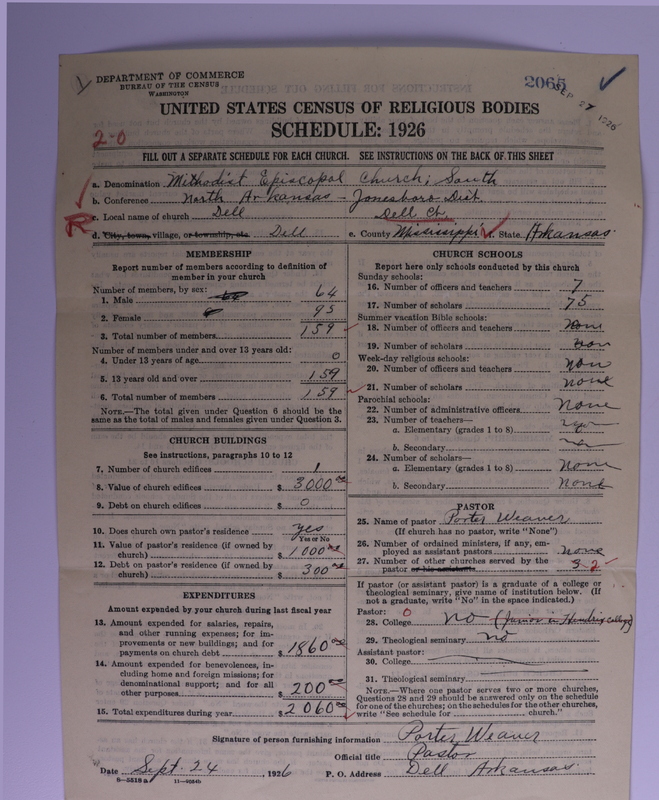 DEPARTMENT OF COMMERCE
BUREAU OF THE CENSUS
WASHINGTON
2065
SEP 27 1926
UNITED STATES CENSUS OF RELIGIOUS BODIES
SCHEDULE: 1926
2-0
FILL OUT A SEPARATE SCHEDULE FOR EACH CHURCH. SEE INSTRUCTIONS ON THE BACK OF THIS SHEET
a. Denomination Methodist Episcopal Church, South
b. Conference North Arkansas - Jonesboro Dist.
R c. Local name of church Dell Dell Ch.
d. City, town, village, or township, etc. Dell e. County Mississippi f. State Arkansas
MEMBERSHIP
Report number of members according to definition of
member in your church
Number of members, by sex:
1. Male 64
2. Female 95
3. Total number of members 159
Number of members under and over 13 years old:
4. Under 13 years of age 0
5. 13 years old and over 159
6. Total number of members 159
NOTE.—The total given under Question 6 should be
same as the total of males and females given under Question 3.
CHURCH BUILDINGS
See instructions, paragraphs 10 to 12
7. Number of church edifices 1
8. Value of church edifices $ 3000.00
9. Debt on church edifices $ 0
10. Does church own pastor's residence yes
Yes or No
11. Value of pastor's residence (if owned by
church) $ 1000.00
12. Debt on pastor's residence (if owned by
church) $ 300.00
EXPENDITURES
Amount expended by your church during last fiscal year
13. Amount expended for salaries, repairs,
and other running expenses; for im-
provements or new buildings; and for
payments on church debt $ 1860.00
14. Amount expended for benevolences, in-
cluding home and foreign missions; for
denominational support; and for all
other purposes $ 200.00
15. Total expenditures during year $ 2060.00
CHURCH SCHOOLS
Report here only schools conducted by this church
Sunday schools:
16. Number of officers and teachers 7
17. Number of scholars 75
Summer vacation Bible schools:
18. Number of officers and teachers None
19. Number of scholars non
Week-day religious schools:
20. Number of officers and teachers non
21. Number of scholars none
Parochial schools:
22. Number of administrative officers None
23. Number of teachers—
a. Elementary (grades 1 to 8)
b. Secondary
24. Number of scholars—
a. Elementary (grades 1 to 8) None
b. Secondary None
PASTOR
25. Name of pastor Porter Weaver
(If church has no pastor, write "None")
26. Number of ordained ministers, if any, em-
ployed as assistant pastors None
27. Number of other churches served by the
pastor or his assistants 3 2
If pastor (or assistant pastor) is a graduate of a college or
theological seminary, give name of institution below. (If
not a graduate, write "No" in the space indicated.)
Pastor: 0
28. College No (Junior in Hendrix College)
29. Theological seminary No
Assistant pastor:
30. College
31. Theological seminary
NOTE.—Where one pastor serves two or more churches,
Questions 28 and 29 should be answered only on the schedule
for one of the churches; on the schedules for the other churches,
write "See schedule for church."
Signature of person furnishing information Porter Weaver
Official title Pastor
Date Sept. 24, 1926 P. O. Address Dell Arkansas.
8—5518 a